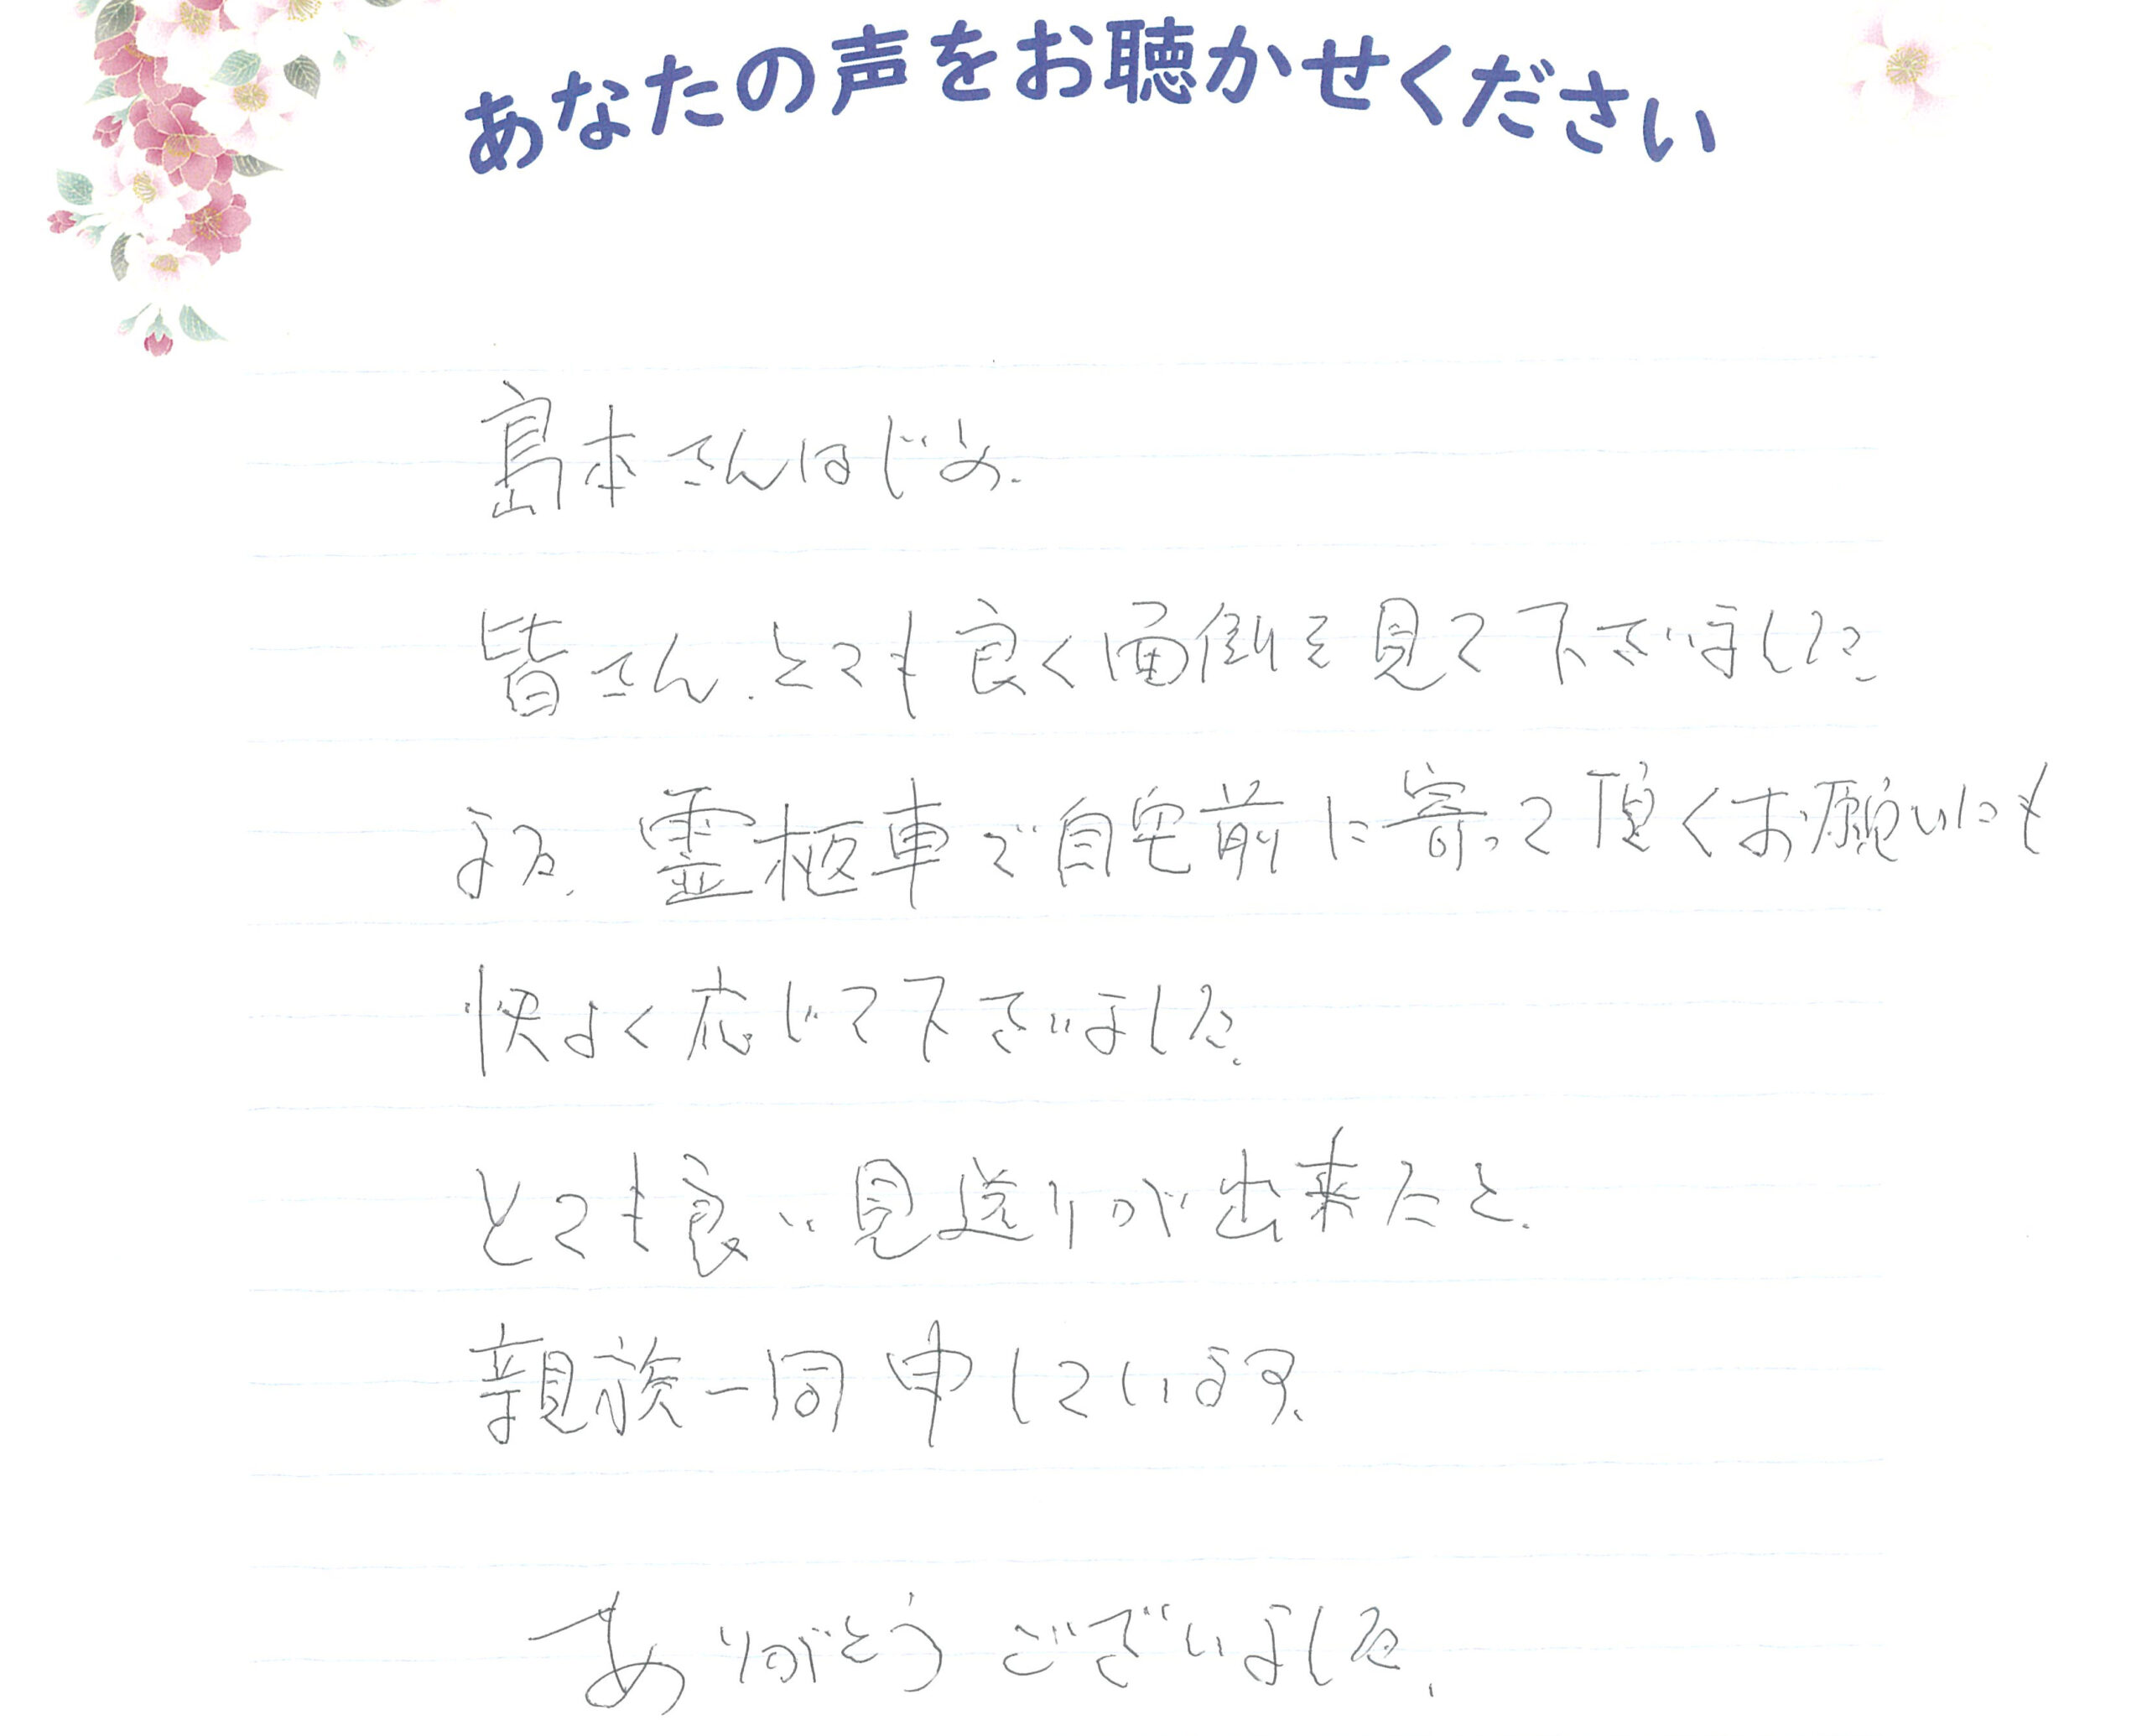 あなたの声をお聴かせください
島本さんはじめ、
皆さん、とても良く面倒を見て下さいました
また、霊柩車で自宅前に寄って頂くお願いにも
快よく応じて下さいました。
とても良い見送りが出来たと、
親族一同申しています。
ありがとうございました。